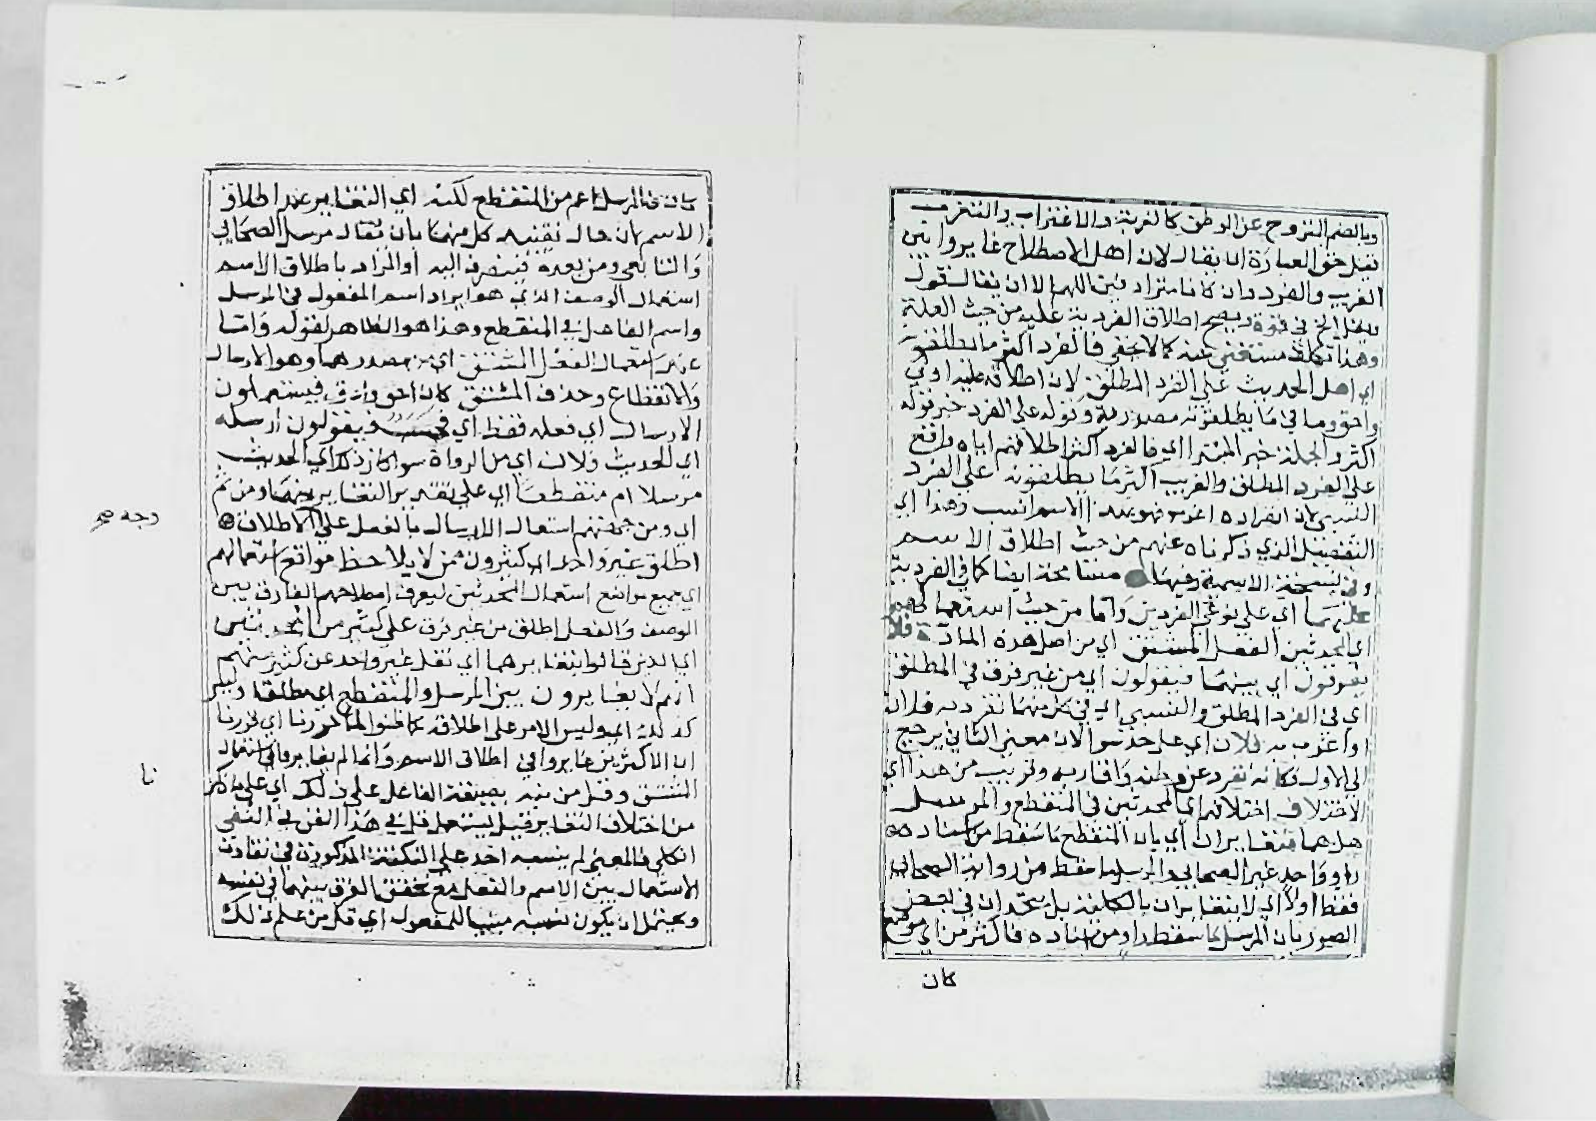 وبالضم النزوح عن الوطن كالغربة والاغتراب والتغرب
قيل حق العبارة ان يقال لان اهل الاصطلاح غايروا بين
الغريب والفرد وان كانا مترادفين اللهم الا ان يقال قوله
الخ في قوة ويصح اطلاق الفردية عليه من حيث العلة
وهذا تكلف مستغنى عنه كما لا يخفى فالفرد اكثر ما يطلقونه
اي اهل الحديث على الفرد المطلق لان اطلاقه عليه اولى
واحق وما في ما يطلقونه مصدرية وقوله على الفرد خبر قوله
اكثر والجملة خبر المبتدا اي فالفرد اكثر اطلاقهم اياه واقع
على الفرد المطلق والغريب اكثر ما يطلقونه على الفرد
النسبي لان انفراده فهو بهذا الاسم انسب وهذا اي
التفصيل الذي ذكرناه عنهم من حيث اطلاق الاسم
وفي نسخة الاسمية وفيها مسامحة ايضا كما في الفردية
عليهما اي على نوعي الفردين واما من حيث استعمالهم
اي المحدثين الفعل المشتق اي من اصل هذه المادة فلا
يفرقون اي بينهما فيقولون اي من غير فرق في المطلق
اي في الفرد المطلق والنسبي اي في كل منهما تفرد به فلان
او اغرب به فلان اي على حد سوا لان معنى الثاني يرجع
الى الاول فكانه تفرد عن وطنه واقاربه وقريب من هذا اي
الاختلاف اختلافهم اي المحدثين في المنقطع والمرسل
هل هما متغايران اي بان المنقطع ما سقط من اسناده
راو واحد غير الصحابي والمرسل ما سقط من روايته الصحابي
فقط اولا اي لا يتغايران بالكلية بل يتحدان في بعض
الصور بان المرسل ما سقط راو من اسناده فاكثر من اي موضع
كان
كان فالمرسل اعم من المنقطع لكنه اي التغاير عند اطلاق
الاسم بان حال تقييد كل منهما بان يقال مرسل الصحابي
والتابعي ومن بعده فينصرف اليه او المراد باطلاق الاسم
استعمال الوصف الذي هو ايراد اسم المفعول في المرسل
واسم الفاعل في المنقطع وهذا هو الظاهر لقوله واما
عند استعمال الفعل المشتق اي من مصدرهما وهو الارسال
والانقطاع وحذف المشتق كان احق وادق فيستعملون
الارسال اي فعله فقط اي فحسب فيقولون ارسله
اي الحديث فلان اي من الرواة سوا كان ذلك اي الحديث
مرسلا ام منقطعا اي على تقدير التغاير بينهما ومن ثم
اي ومن جهة استعمال الارسال بالفعل على الاطلاق
وجه صح
اطلق غير واحد اي كثيرون ممن لا يلاحظ مواقع استعمالهم
اي جميع مواقع استعمال المحدثين ليعرف اصطلاحهم الفارق بين
الوصف والفعل اطلق من غير فرق على كثير من المحدثين
اي الذين قالوا بتغايرهما اي نقل غير واحد عن كثير منهم
انهم لا يغايرون بين المرسل والمنقطع اي مطلقا وليس
كذلك اي وليس الامر على اطلاقه كما ظنوا لما حررنا اي قررنا
ان الاكثرين غايروا في اطلاق الاسم وانما لم يغايروا في استعمال
نا
المشتق وقل من نبه بصيغة الفاعل على ذلك اي على ما ذكر
من اختلاف التغاير قيل يستعمل قل في هذا الفن في النفي
الكلي فالمعنى لم ينبه احد على النكتة المذكورة في تفاوت
الاستعمال بين الاسم والفعل مع تحقق الفرق بينهما في نفسه
ويحتمل ان يكون نبه مبنيا للمفعول اي قل من علم ذلك